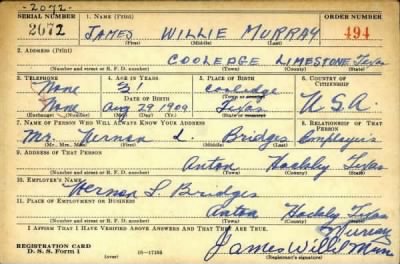 -2072-
SERIAL NUMBER 1. NAME (Print) ORDER NUMBER
2072 JAMES WILLIE MURRAY 494
(First) (Middle) (Last)
2. ADDRESS (Print)
COOLEDGE LIMESTONE Texas
(Number and street or R. F. D. number) (Town) (County) (State)
3. TELEPHONE 4. AGE IN YEARS 5. PLACE OF BIRTH 6. COUNTRY OF CITIZENSHIP
None 31 Cooledge
DATE OF BIRTH (Town or county)
None Aug 29 1909 Texas U.S.A.
(Exchange) (Number) (Mo.) (Day) (Yr.) (State or country)
7. NAME OF PERSON WHO WILL ALWAYS KNOW YOUR ADDRESS 8. RELATIONSHIP OF THAT PERSON
Mr. Vernon L. Bridges Employers
(Mr., Mrs., Miss) (First) (Middle) (Last)
9. ADDRESS OF THAT PERSON
Anton Hockly Texas
(Number and street or R. F. D. number) (Town) (County) (State)
10. EMPLOYER'S NAME
Vernon L. Bridges
11. PLACE OF EMPLOYMENT OR BUSINESS
Anton Hockly Texas
(Number and street or R. F. D. number) (Town) (County) (State)
I AFFIRM THAT I HAVE VERIFIED ABOVE ANSWERS AND THAT THEY ARE TRUE.
Murray
REGISTRATION CARD James Willie
D. S. S. Form 1 (over) 16-17105 (Registrant's signature)